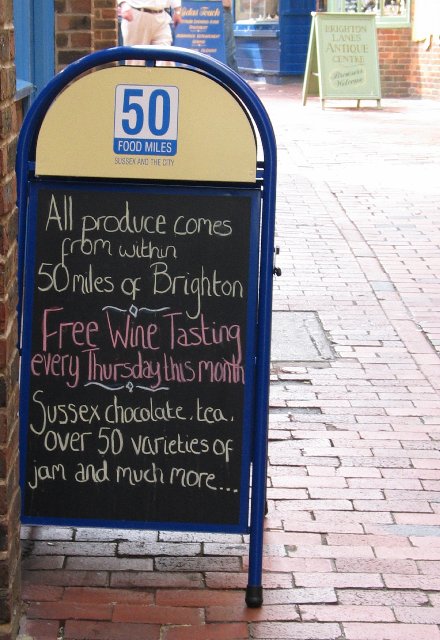 50
FOOD MILES
SUSSEX AND THE CITY
All produce comes
from within
50 miles of Brighton
Free Wine Tasting
every Thursday this month
Sussex chocolate, tea,
over 50 varieties of
jam and much more...
BRIGHTON
LANES
ANTIQUE
CENTRE
Browsers
Welcome